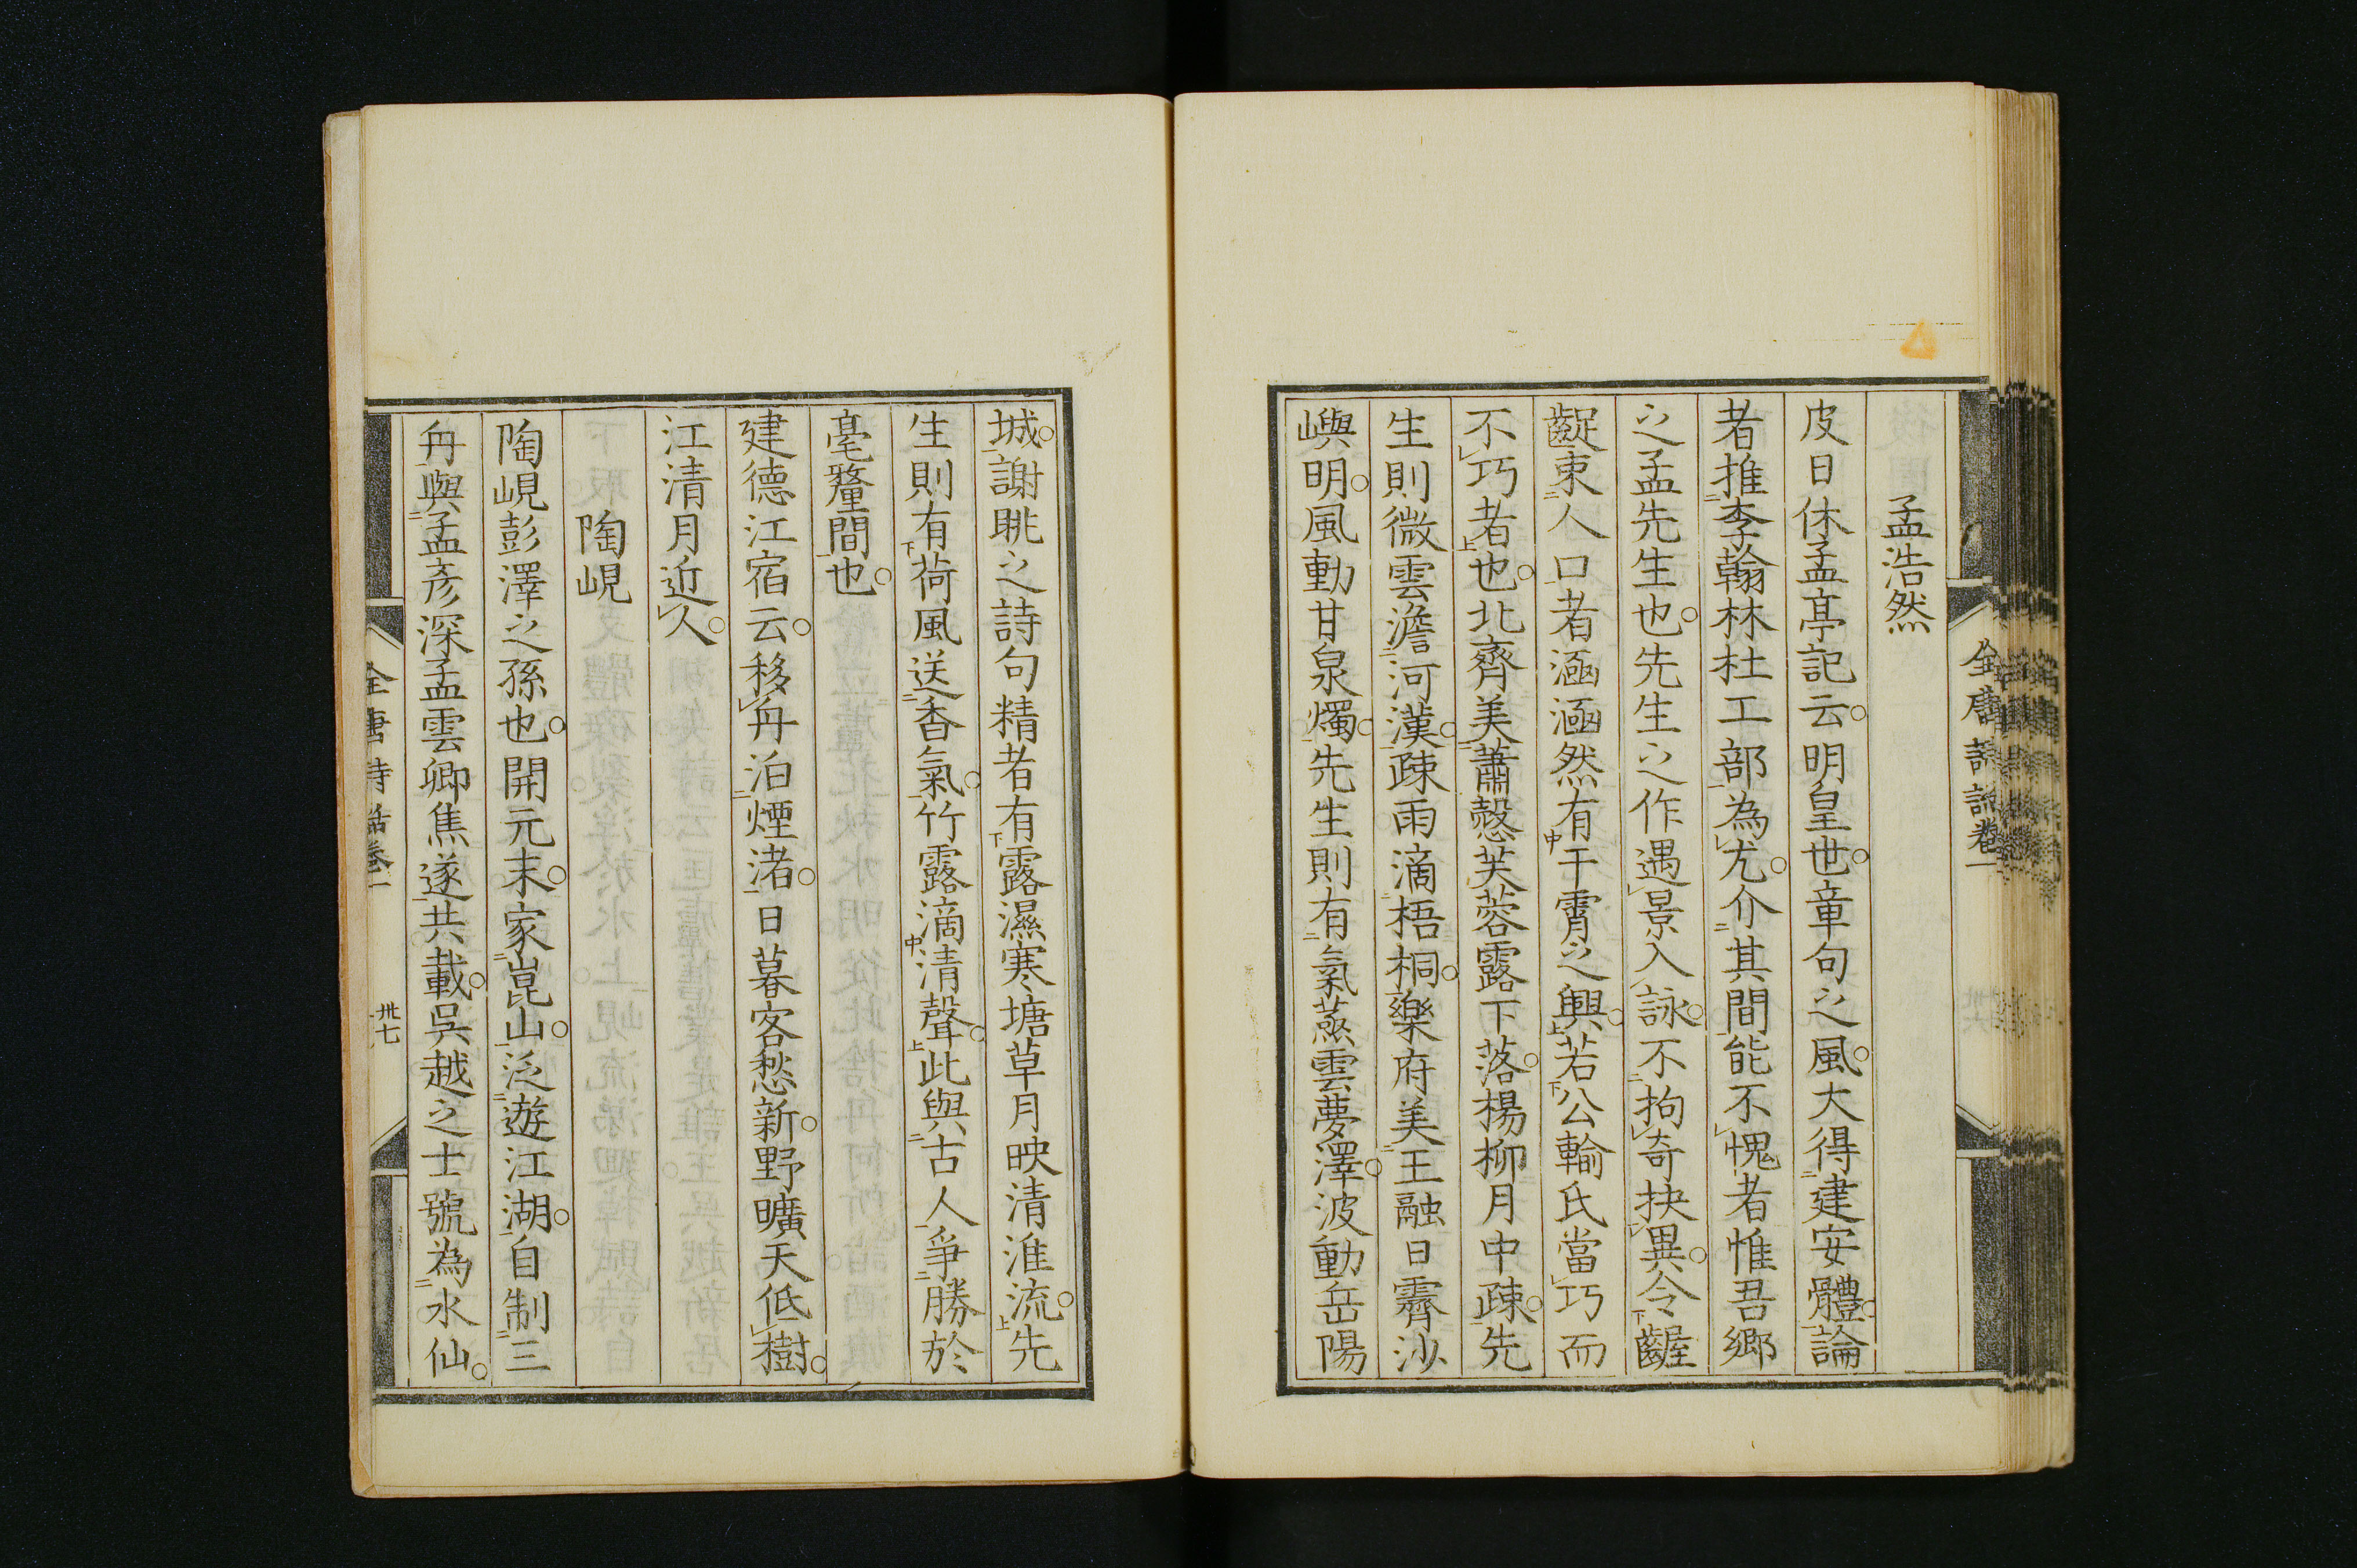 全唐詩話卷一
孟浩然
皮日休孟亭記云明皇世章句之風大得建安體論
者推李翰林杜工部為尤介其間能不愧者惟吾鄉
之孟先生也先生之作遇景入詠不拘奇抉異令齷
齪束人口者涵涵然有干霄之興若公輸氏當巧而
不巧者也北齊美蕭愨芙蓉露下落楊柳月中疎先
生則微雲澹河漢疎雨滴梧桐樂府美王融日霽沙
嶼明風動甘泉燭先生則有氣蒸雲夢澤波動岳陽
城謝眺之詩句精者有露濕寒塘草月映清淮流先
生則有荷風送香氣竹露滴清聲此與古人爭勝於
毫釐間也
建德江宿云移舟泊煙渚日暮客愁新野曠天低樹
江清月近人
陶峴
陶峴彭澤之孫也開元末家崑山泛遊江湖自制三
舟與孟彥深孟雲卿焦遂共載吳越之士號為水仙
全唐詩話卷一
卅七